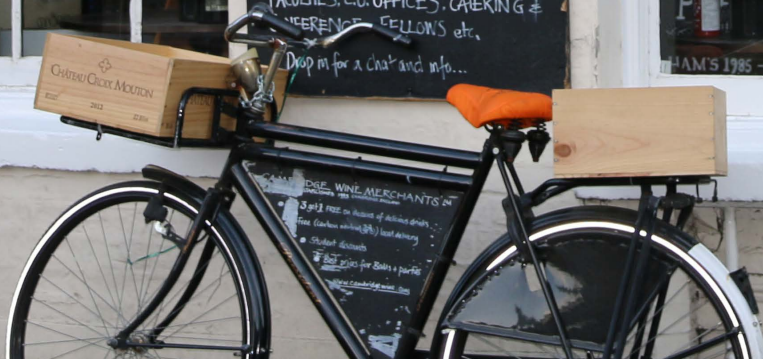 FACULTIES, C.U. OFFICES, CATERING &
CONFERENCE FELLOWS etc,
Drop in for a chat and info...
HAM'S 1985
CHÂTEAU CROIX MOUTON
2012
CAMBRIDGE WINE MERCHANTS
FREE on dozens of delicious drinks
Free local delivery
Student discounts
Best prices for Balls & parties
www.cambridgewine.com